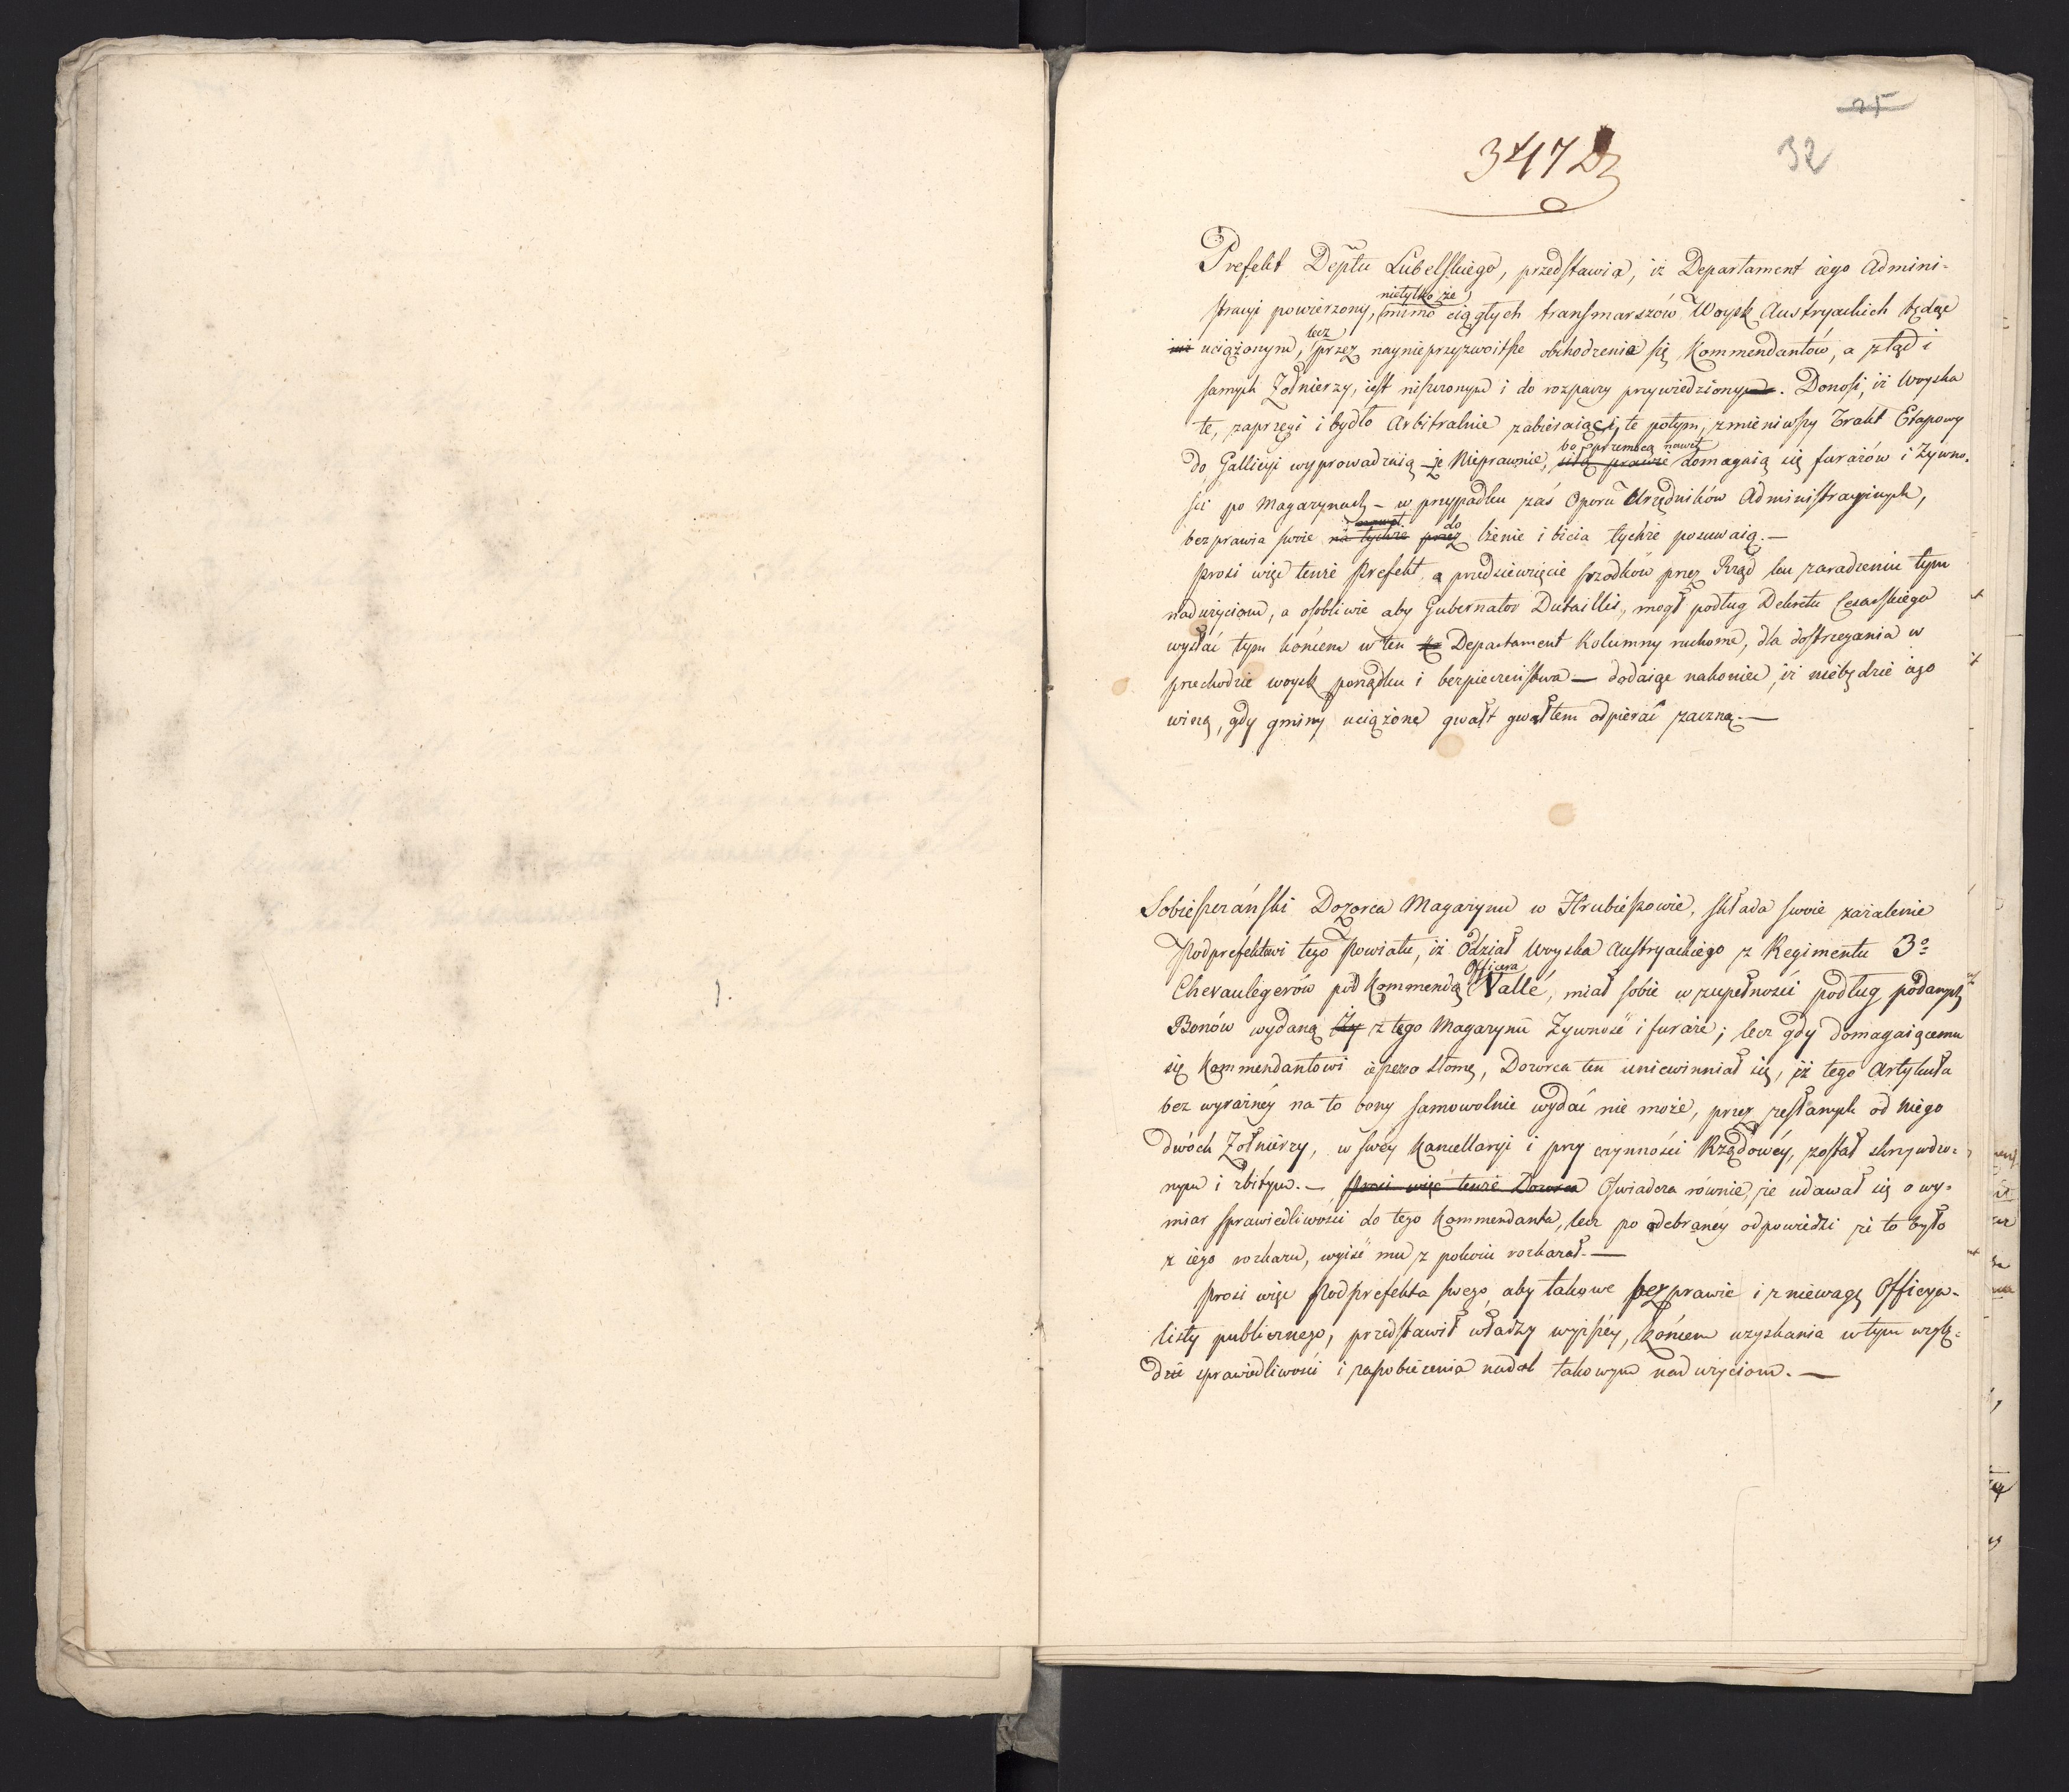 25
32
3417 D
Prefekt Deptu Lubelskiego, przedstawia, iż Departament iego Admini-
stracyi powierzony, nietylko że mimo ciągłych transmarszów Woysk Austryackich będąc
już uciążonym, lecz przez naynieprzyzwoitsze obchodzenia się Kommendantów, a ztąd i
samych Żołnierzy, iest niszczonym i do rozpaczy przywiedzionym. Donosi, iż Woyska
te, zaprzęgi i bydło Arbitralnie zabieraiąc i te potym, zmieniwszy Trakt Etapowy
do Gallicyi wyprowadzaią że Nieprawnie, bo przemocą nawet siłą prawie domagaią się furażów i Żywno-
ści po Magazynach – w przypadku zaś Oporu Urzędników Administracyinych,
bezprawia swoie na tychże przez do lżenie i bicia tychże posuwaią. –
Prosi więc tenże Prefekt, o przedsięwzięcie srzodków przez Rząd ku zaradzeniu tym
nadużyciom, a osobliwie aby Gubernator Dutaillis, mogł podług Dekretu Cesarskiego
wysłać tym końcem w ten Departament Kolumny ruchome, dla dostrzegania w
przechodzie woysk porządku i bezpieczeństwa – dodaiąc nakoniec, iż niebędzie iego
winą, gdy gminy uciążone gwałt gwałtem odpierać zaczną. –
Sobieszczański Dozorca Magazynu w Hrubieszowie, składa swoie zażalenie
Podprefektowi tego Powiatu, iż Odział Woyska Austryackiego z Regimentu 3º
Chevaulegerów pod Kommendą Officera Vallé, miał sobie w zupełności podług podanych
Bonów wydaną Ży z tego Magazynu Żywność i furaże; lecz gdy domagaiącemu
się Kommendantowi ieszcze o słomę, Dozorca ten uniewinniał się, iż tego Artykułu
bez wyraźnéy na to bony samowolnie wydać nie może, przez zesłanych od niego
dwóch Żołnierzy, w swéy Kancellaryi i przy czynności Rządowéy, został skrzywdzo-
nym i zbitym. – Prosi więc tenże Dozorca Oświadcza równie, że udawał się o wy-
miar sprawiedliwości do tego Kommendanta, lecz po odebranéy odpowiedzi że to było
z iego rozkazu, wyiść mu z pokoiu rozkazał. –
Prosi więc Podprefekta swego, aby takowe bezprawie i zniewagę Officya-
listy publicznego, przedstawił władzy wyższéy, końcem uzyskania w tym wzglę-
dzie sprawiedliwości i zapobieżenia nadal takowym nadużyciom. –